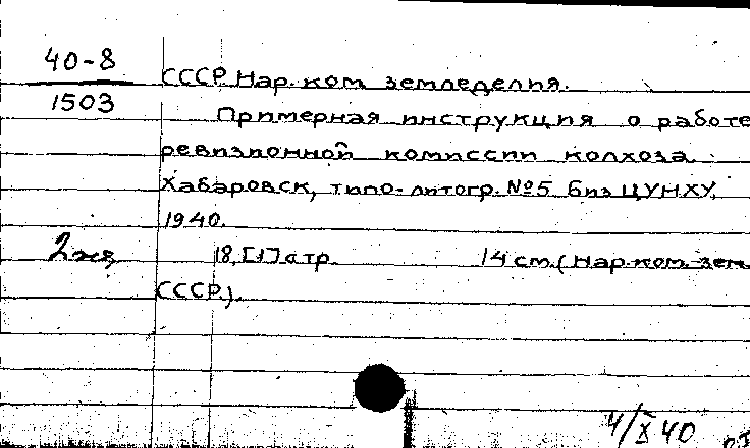 40-8
1503
СССР. Нар. ком. земледелия.
Примерная инструкция о работе
ревизионной комиссии колхоза.
Хабаровск, типо-литогр. №5 биз ЦУНХУ,
1940.
2 экз
18, [1] стр. 14 см. (Нар. ком. зем.
СССР).
4/X 40